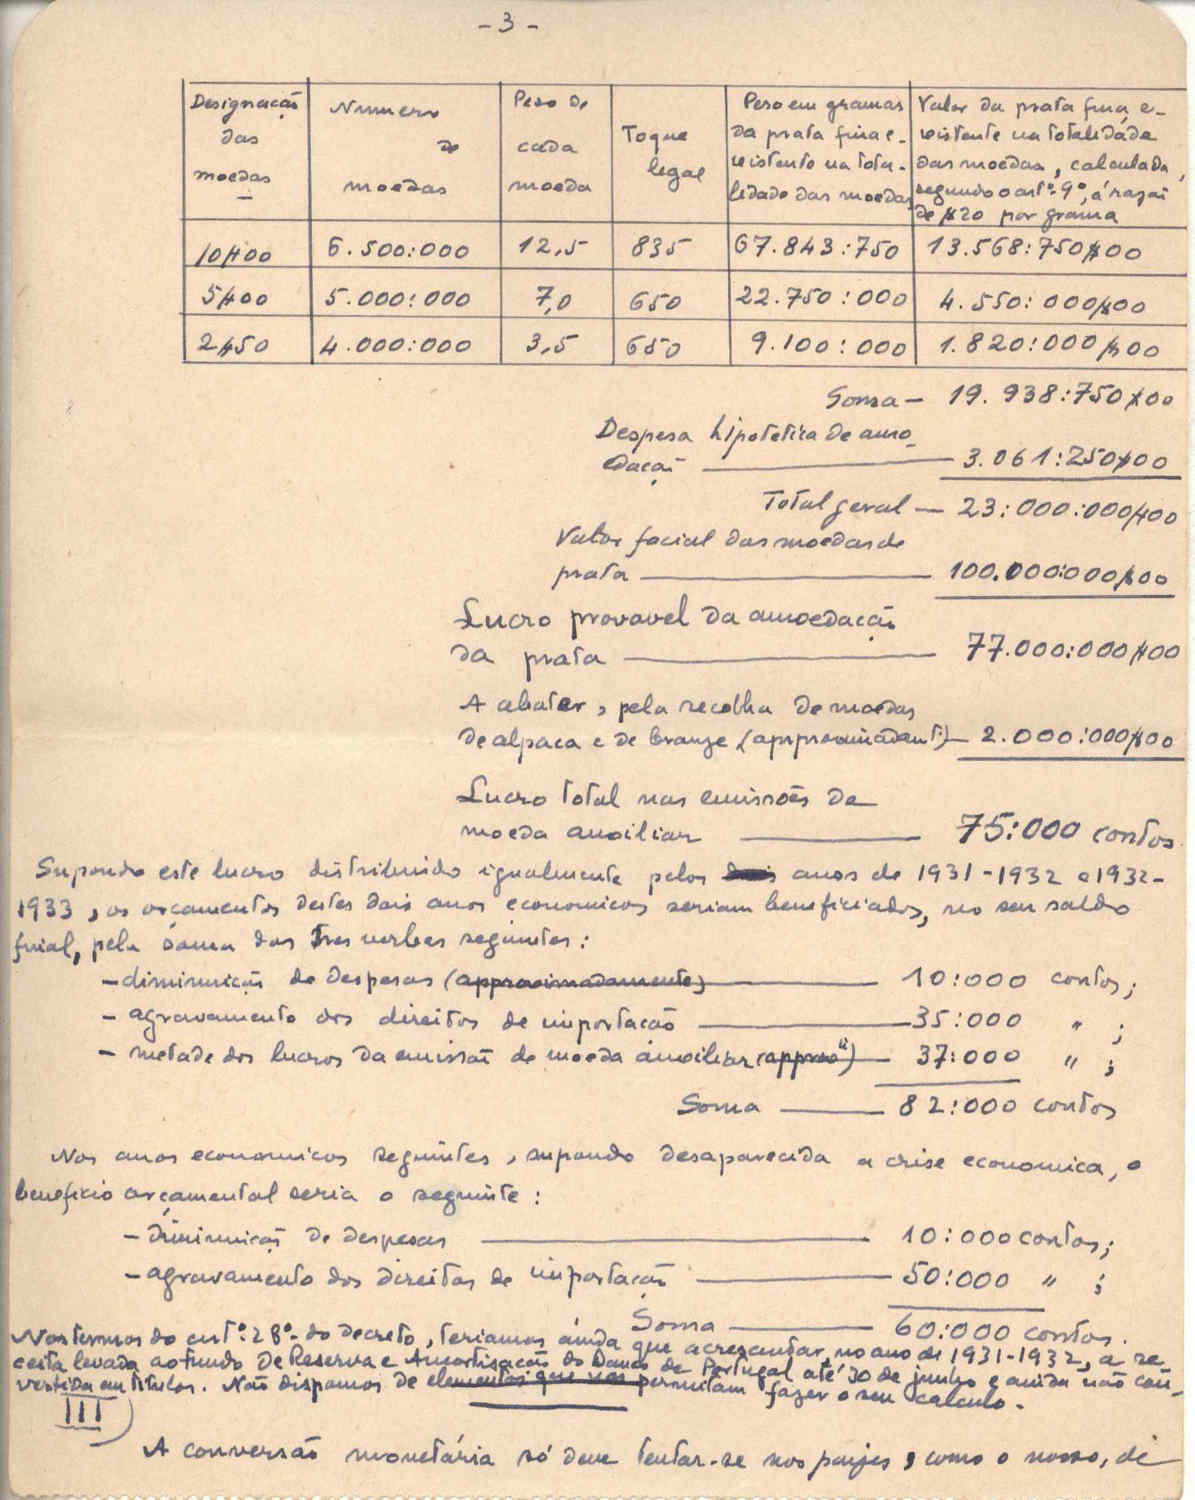 - 3 -
Designação das moedas | Numero de moedas | Peso de cada moeda | Toque legal | Peso em gramas da prata fina existente na totalidade das moedas | Valor da prata fina, existente na totalidade das moedas, calculada, segundo o artº. 9º, á razaõ de $20 por grama
10$00 | 6.500:000 | 12,5 | 835 | 67.843:750 | 13.568:750$00
5$00 | 5.000:000 | 7,0 | 650 | 22.750:000 | 4.550:000$00
2$50 | 4.000:000 | 3,5 | 650 | 9.100:000 | 1.820:000$00
Soma — 19.938:750$00
Despesa hipotetica de amo-
edaçaõ — 3.061:250$00
Total geral — 23:000:000$00
Valor facial das moedas de
prata — 100.000:000$00
Lucro provavel da amoedaçaõ
da prata — 77.000:000$00
A abater, pela recolha de moedas
de alpaca e de bronze (approximadamte.) — 2.000:000$00
Lucro total nas emissões de
moeda auxiliar — 75:000 contos
Supondo este lucro distribuido igualmente pelos anos de 1931-1932 e 1932-
1933, os orçamentos destes dois anos economicos seriam beneficiados, no seu saldo
final, pela soma das tres verbas seguintes:
- diminuiçaõ de despesas (approximadamente) — 10:000 contos;
- agravamento dos direitos de importação — 35:000 " ;
- metade dos lucros da emissaõ de moeda auxiliar (approx.) — 37:000 " ;
Soma — 82:000 contos
Nos anos economicos seguintes, supondo desaparecida a crise economica, o
beneficio orçamental seria o seguinte:
- diminuiçaõ de despesas — 10:000 contos;
- agravamento dos direitos de importaçaõ — 50:000 " ;
Soma — 60:000 contos.
Nos termos do artº. 28º. do decreto, teriamos ainda que acrescentar, no ano de 1931-1932, a re-
ceita levada ao fundo de Reserva e Amortisaçaõ do Banco de Portugal até 30 de junho e ainda não con-
vertida em titulos. Não dispomos de elementos que nos permitam fazer o seu calculo.
III)
A conversão monetária só deve tentar-se nos paizes, como o nosso, de